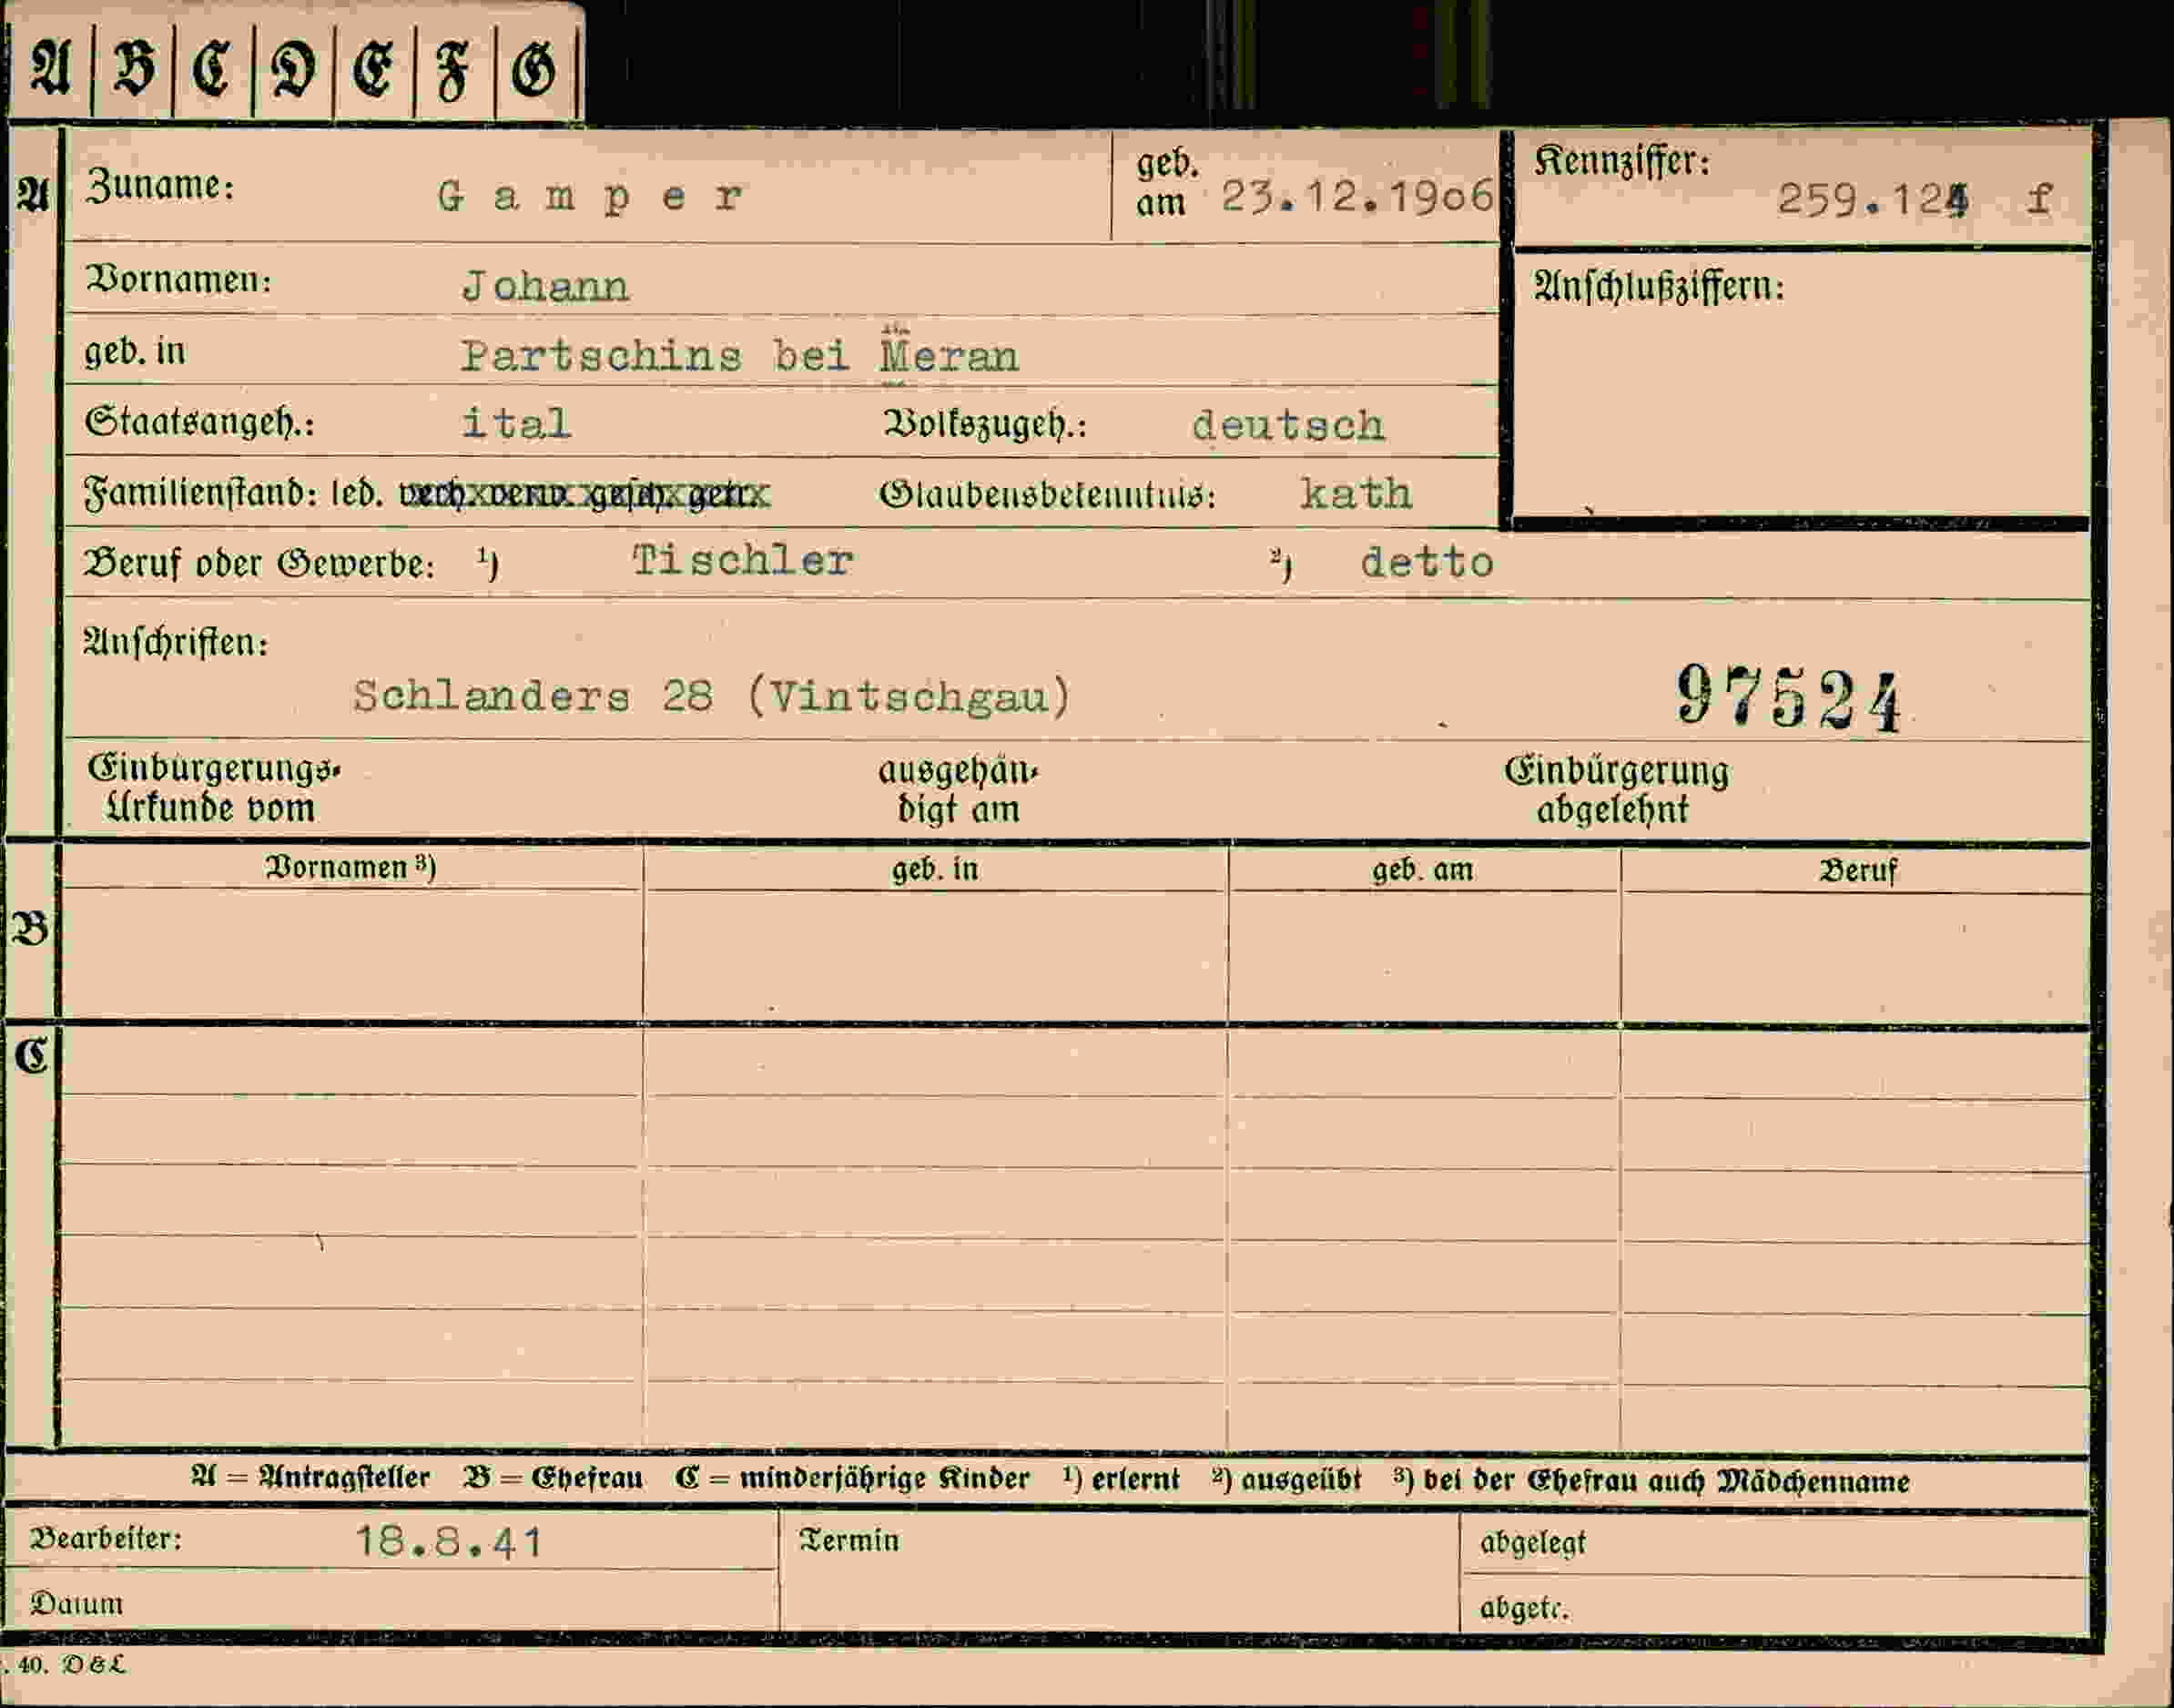 A B C D E F G
A Zuname: Gamper geb. am 23.12.1906 Kennziffer: 259.124 f
Vornamen: Johann Anschlußziffern:
geb. in Partschins bei Meran
Staatsangeh.: ital Volkszugeh.: deutsch
Familienstand: led. verh. verw. gesch. getr. Glaubensbekenntnis: kath
Beruf oder Gewerbe: ¹) Tischler ²) detto
Anschriften:
Schlanders 28 (Vintschgau) 97524
Einbürgerungs- ausgehän- Einbürgerung
Urkunde vom digt am abgelehnt
Vornamen ³) geb. in geb. am Beruf
B
C
A = Antragsteller B = Ehefrau C = minderjährige Kinder ¹) erlernt ²) ausgeübt ³) bei der Ehefrau auch Mädchenname
Bearbeiter: 18.8.41 Termin abgelegt
Datum abgetr.
. 40. D&L